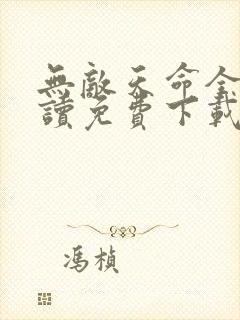 無敵天命全
讀免費下載
馮楨